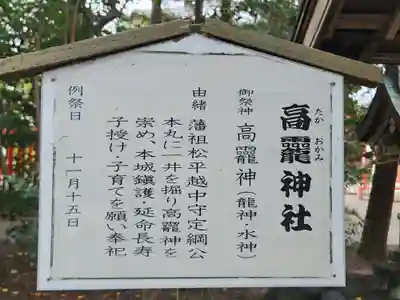 高龗神社
たか おかみ
御祭神 高龗神(龍神・水神)
由緒 藩祖松平越中守定綱公
本丸に一井を掘り高龗神を
崇め、本城鎮護、延命長寿
子授け・子育てを願い奉祀
例祭日 十一月十五日